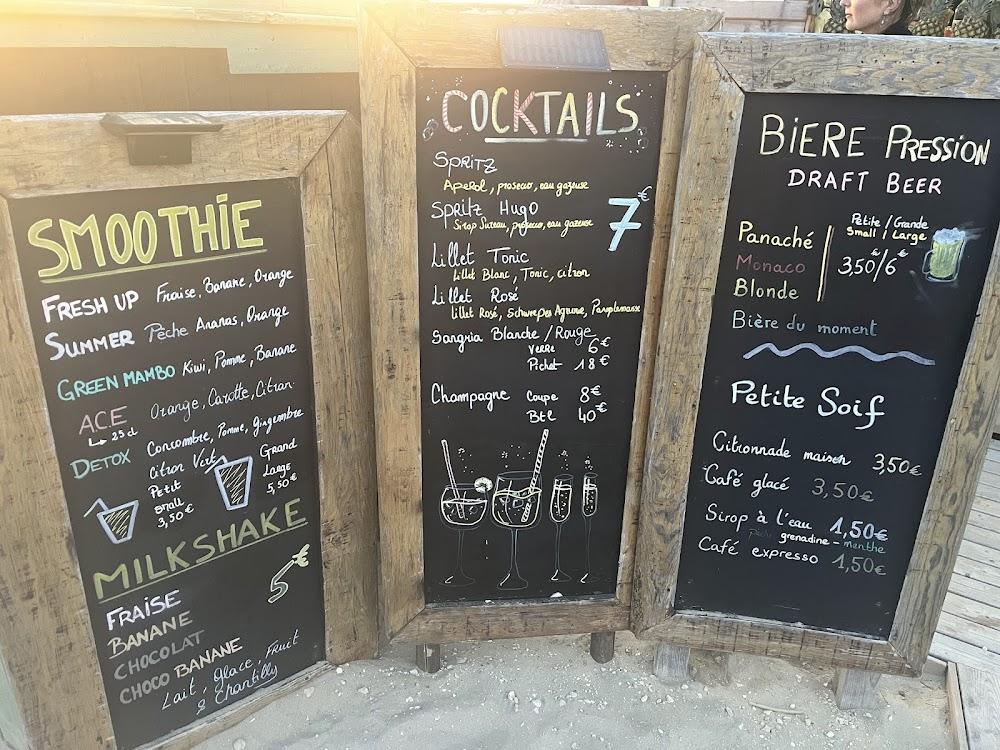 SMOOTHiE
FRESH UP Fraise, Banane, Orange
SUMMER Pêche Ananas, Orange
GREEN MAMBO Kiwi, Pomme, Banane
ACE Orange, Carotte, Citron
↳ 25 cl
DETOX Concombre, Pomme, gingembre
Citron Vert
Petit
small
3,50€
Grand
Large
5,50€
MILKSHAKE
5€
FRAISE
BANANE
CHOCOLAT
CHOCO BANANE
Lait, Glace, Fruit
& Chantilly
COCKTAILS
SPRITZ
Aperol, prosecco, eau gazeuse
SPRITZ HUGO
Sirop Sureau, prosecco, eau gazeuse
7€
Lillet Tonic
Lillet Blanc, Tonic, citron
Lillet Rosé
Lillet Rosé, Schweppes Agrume, Pamplemousse
Sangria Blanche / Rouge
Verre 6€
Pichet 18€
Champagne Coupe 8€
Btl 40€
BiERE PRESSiON
DRAFT BEER
Petite / Grande
Small / Large
Panaché
Monaco 3,50€/6€
Blonde
Bière du moment
Petite Soif
Citronnade maison 3,50€
Café glacé 3,50€
Sirop à l'eau 1,50€
grenadine - menthe
Café expresso 1,50€